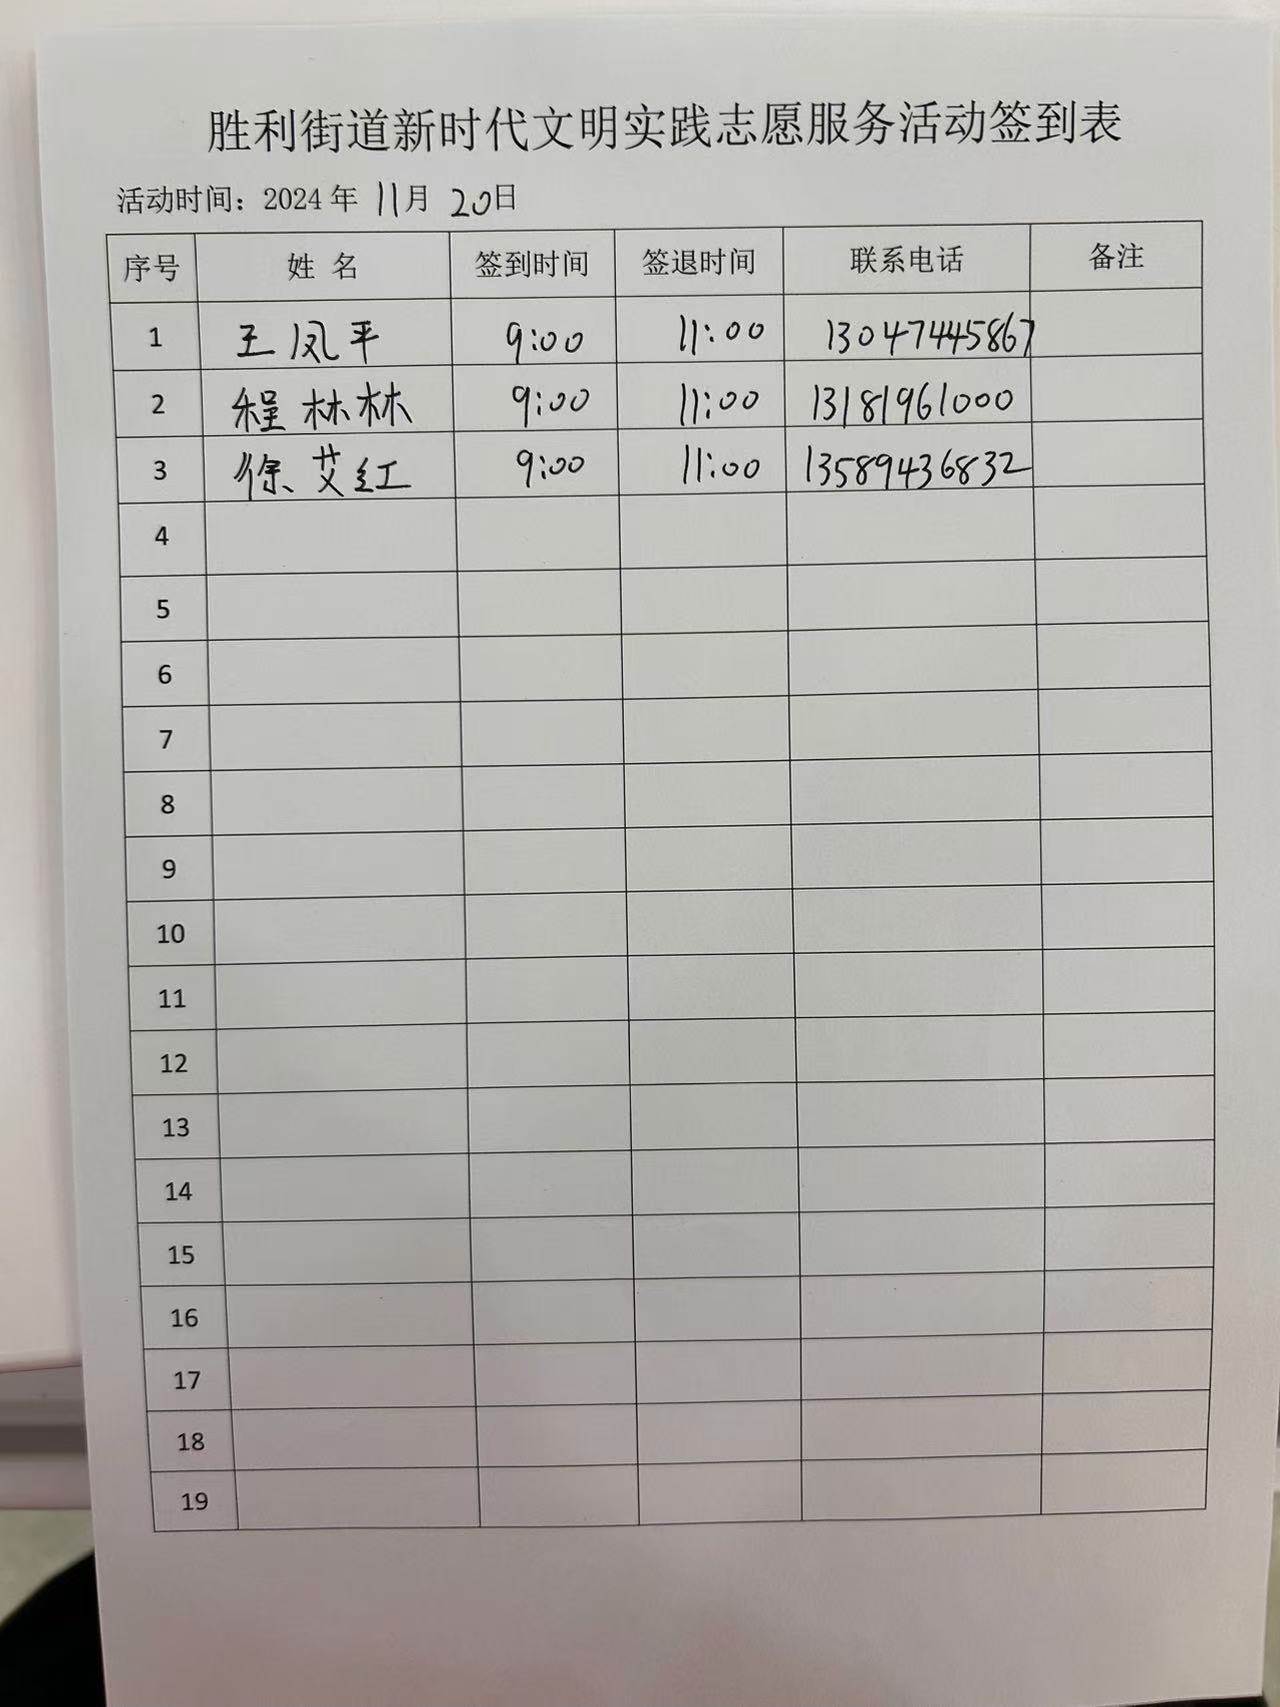 胜利街道新时代文明实践志愿服务活动签到表
活动时间：2024年 11月 20日
序号 姓 名 签到时间 签退时间 联系电话 备注
1 王凤平 9:00 11:00 13047445867
2 程林林 9:00 11:00 13181961000
3 徐艾红 9:00 11:00 13589436832
4
5
6
7
8
9
10
11
12
13
14
15
16
17
18
19